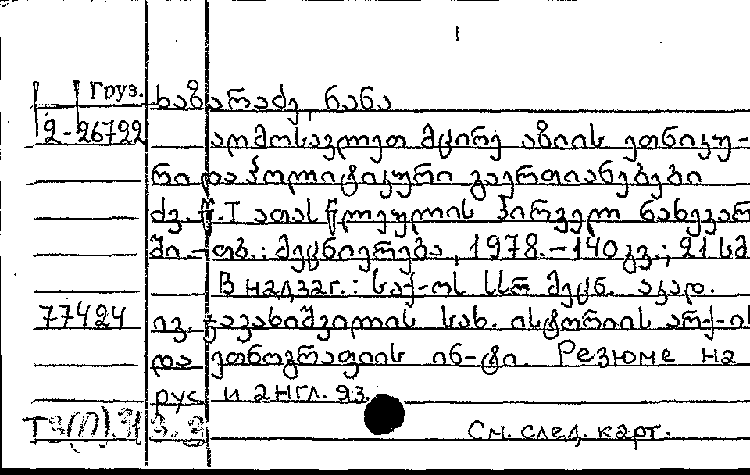 Груз. ხაზარაძე, ნანა
2-26722 აღმოსავლეთ მცირე აზიის ეთნიკუ-
რი და პოლიტიკური გაერთიანებები
ძვ. წ. I ათასწლეულის პირველ ნახევარ
ში.-თბ.: მეცნიერება, 1978.-140 გვ.; 21 სმ
В надзаг.: საქ-ოს სსრ მეცნ. აკად.
77424 ივ. ჯავახიშვილის სახ. ისტორიის არქ-ის
და ეთნოგრაფიის ინ-ტი. Резюме на
рус. и англ. яз.
См. след. карт.